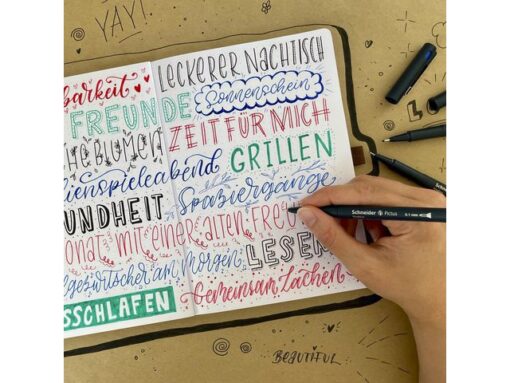 YAY!
LECKERER NACHTISCH
barkeit
Sonnenschein
FREUNDE
ZEIT FÜR MICH
HE BLUMEN
GRILLEN
ienspieleabend
Spaziergänge
UNDHEIT
onat mit einer alten Freun
LESEN
gezwitscher am Morgen
Gemeinsam Lachen
SSCHLAFEN
Schneider Pictus 0.1 mm
BEAUTIFUL